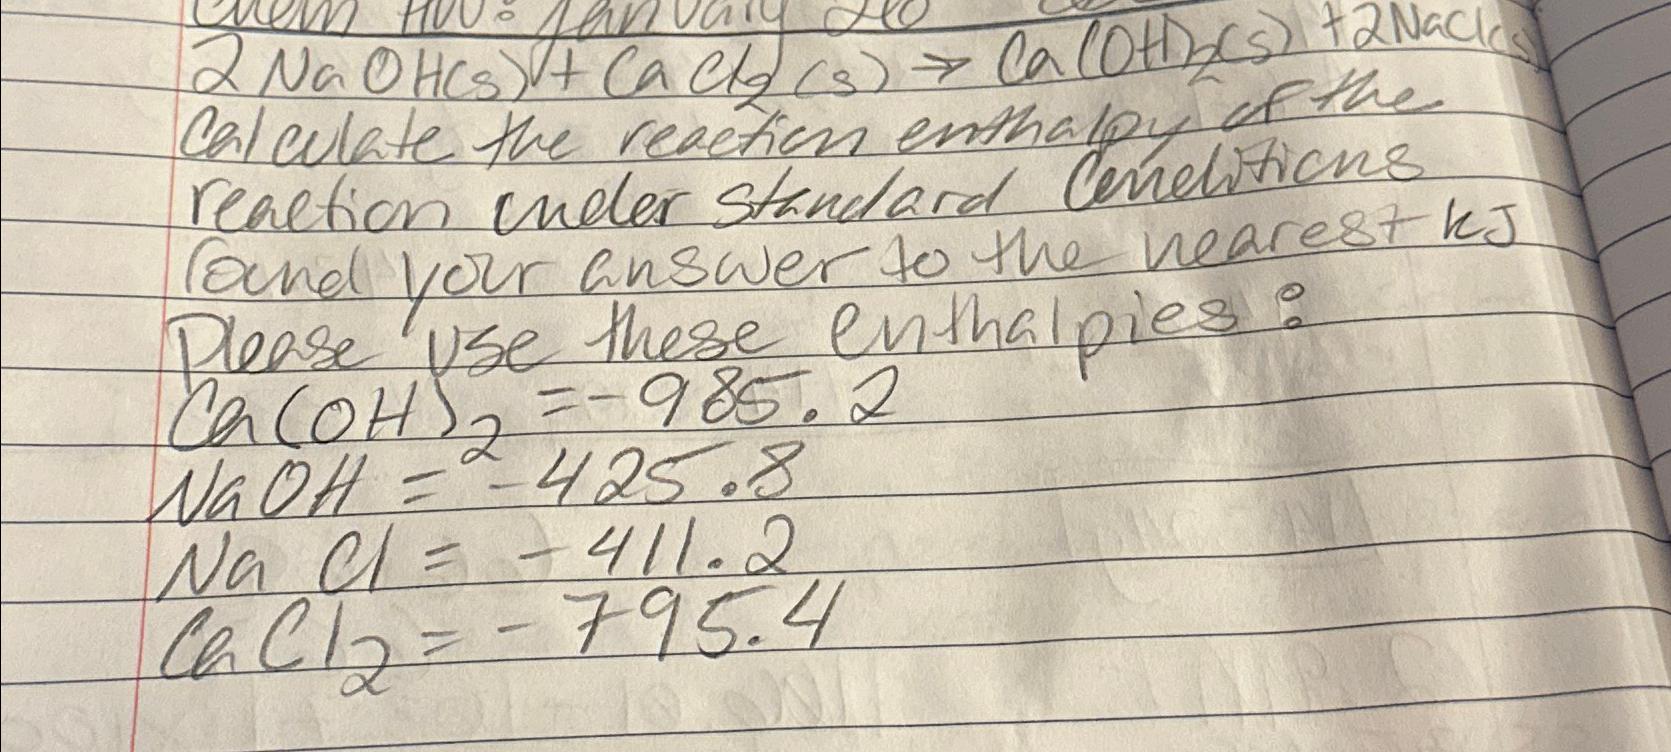 Chem HW: January 20
2NaOH(s) + CaCl2(s) → Ca(OH)2(s) + 2NaCl(s)
Calculate the reaction enthalpy of the
reaction under standard Conditions
round your answer to the nearest kJ
Please use these enthalpies:
Ca(OH)2 = -985.2
NaOH = -425.8
NaCl = -411.2
CaCl2 = -795.4